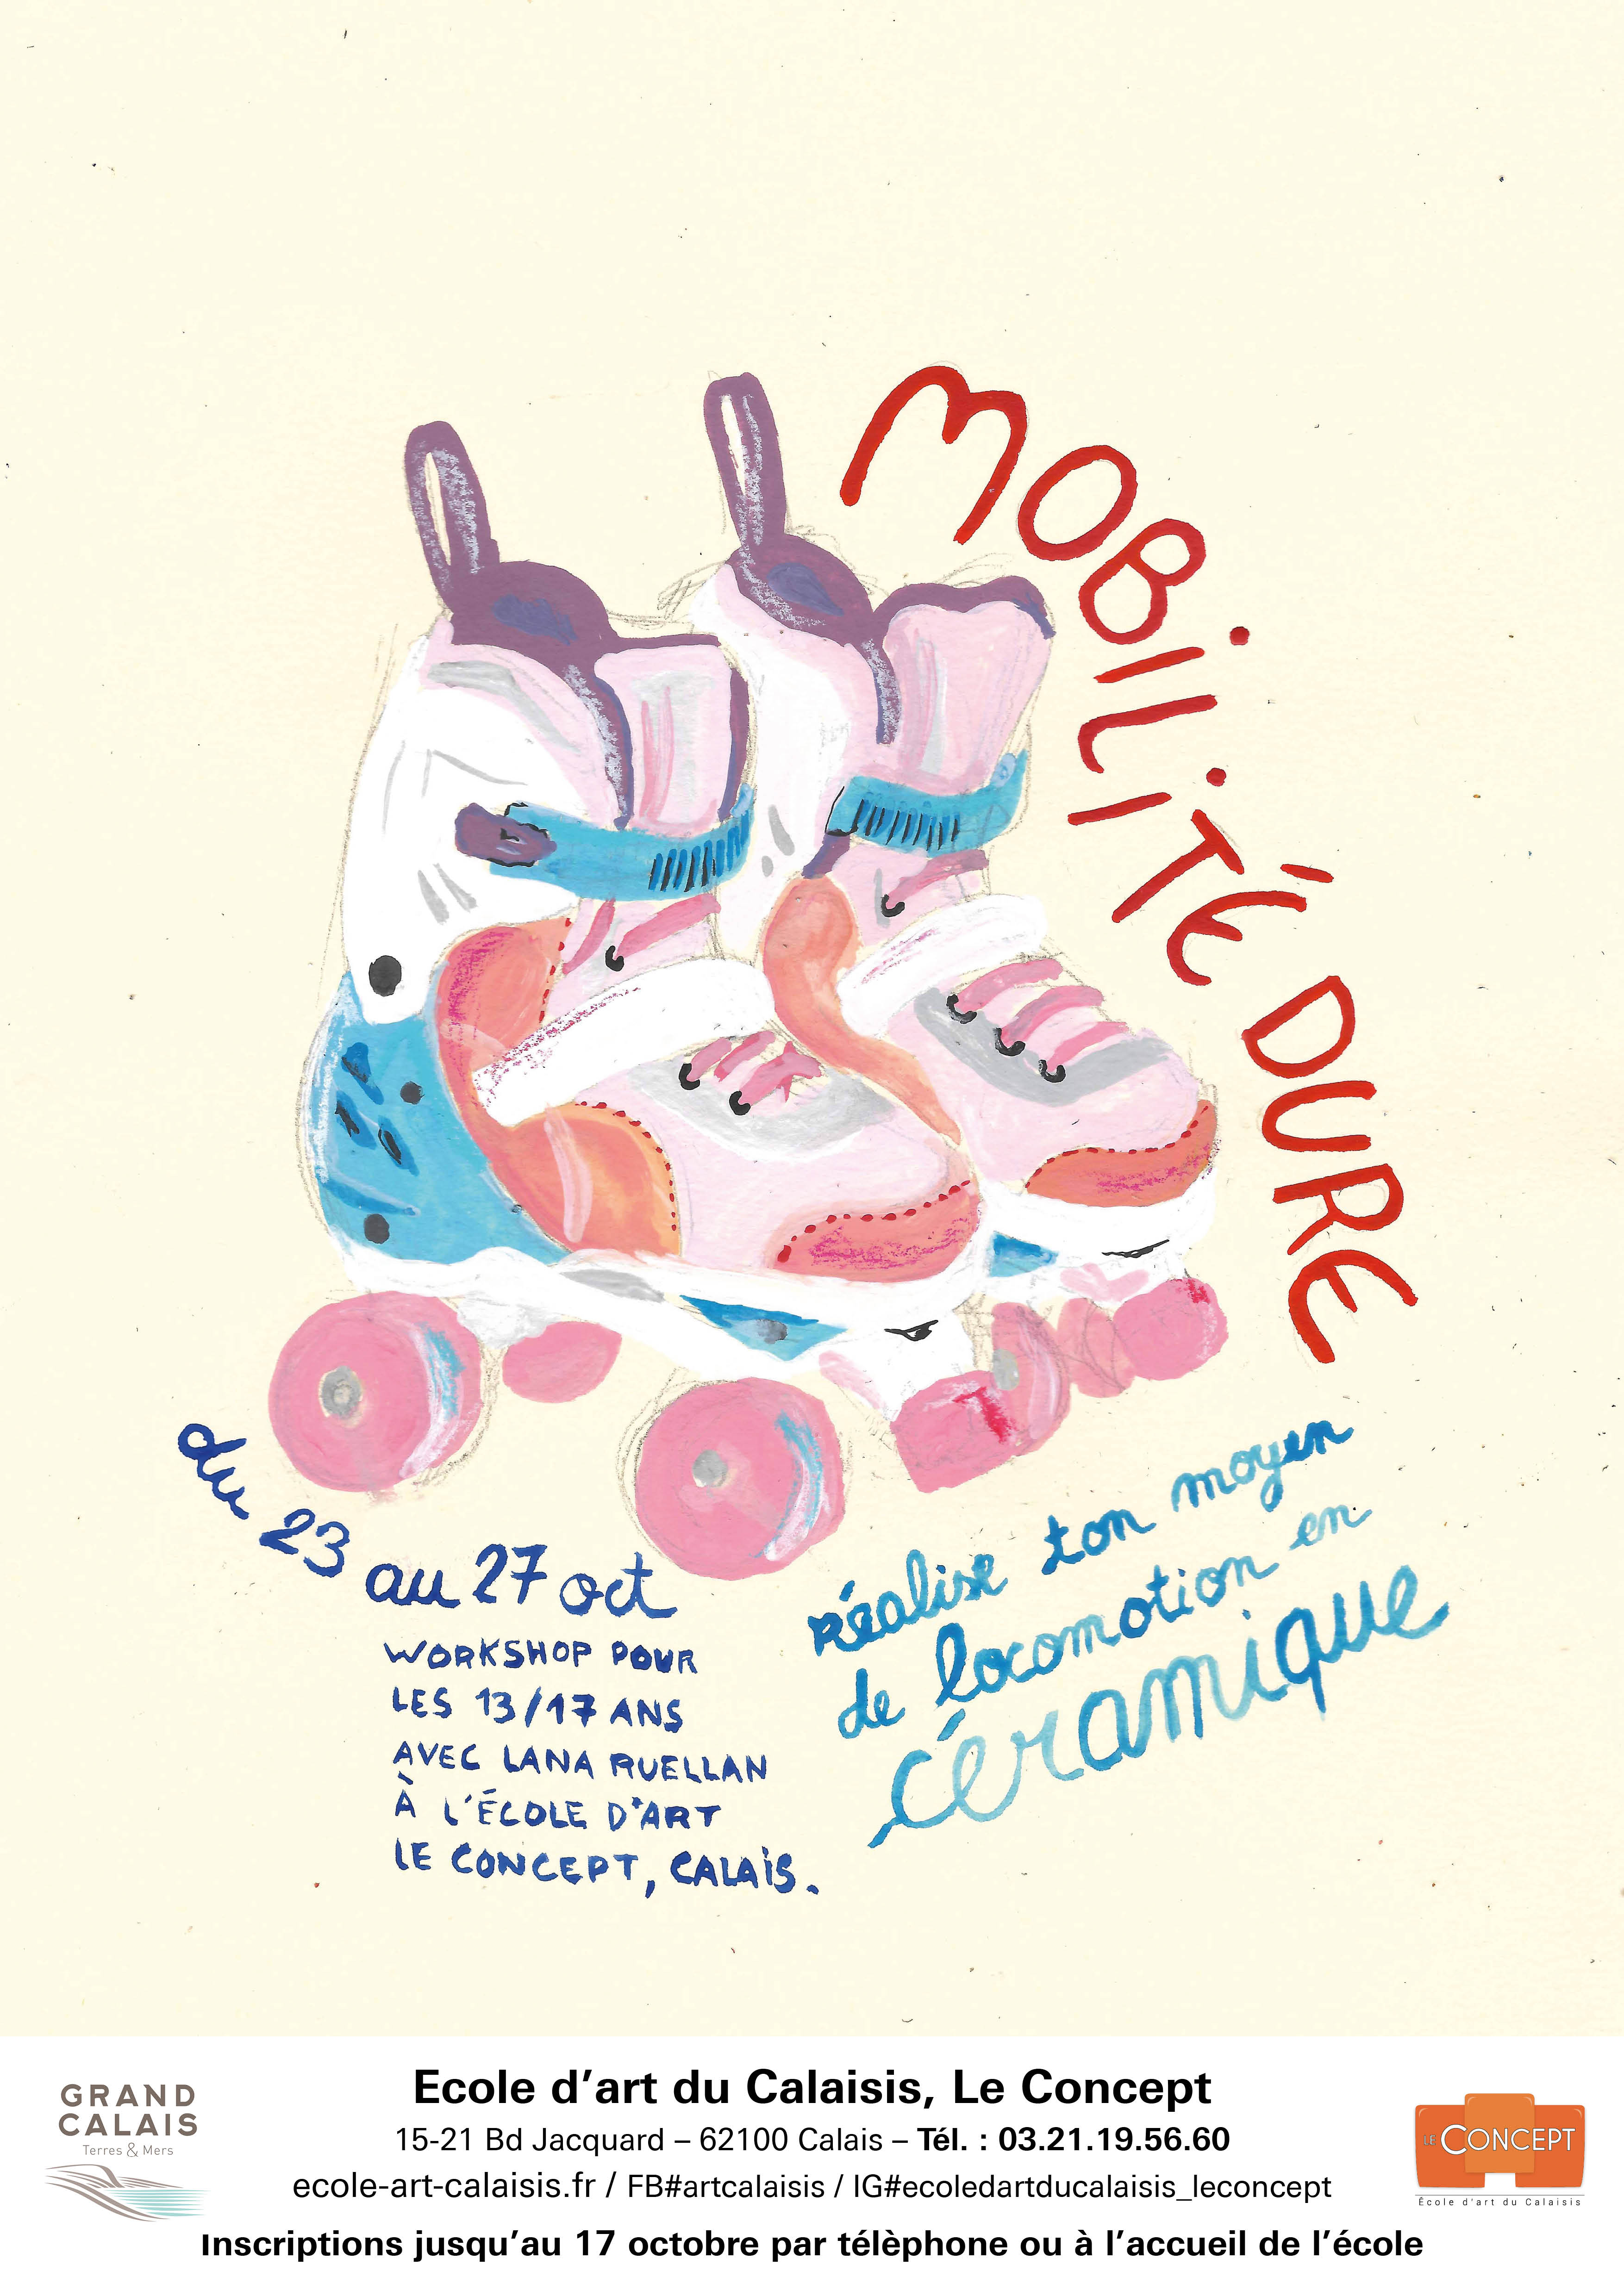 MOBILITÉ DURE
du 23 au 27 oct
WORKSHOP POUR
LES 13/17 ANS
AVEC LANA RUELLAN
À L'ÉCOLE D'ART
LE CONCEPT, CALAIS.
réalise ton moyen
de locomotion en
céramique
GRAND
CALAIS
Terres & Mers
Ecole d’art du Calaisis, Le Concept
15-21 Bd Jacquard – 62100 Calais – Tél. : 03.21.19.56.60
ecole-art-calaisis.fr / FB#artcalaisis / IG#ecoledartducalaisis_leconcept
Inscriptions jusqu’au 17 octobre par télèphone ou à l’accueil de l’école
LE CONCEPT
École d'art du Calaisis